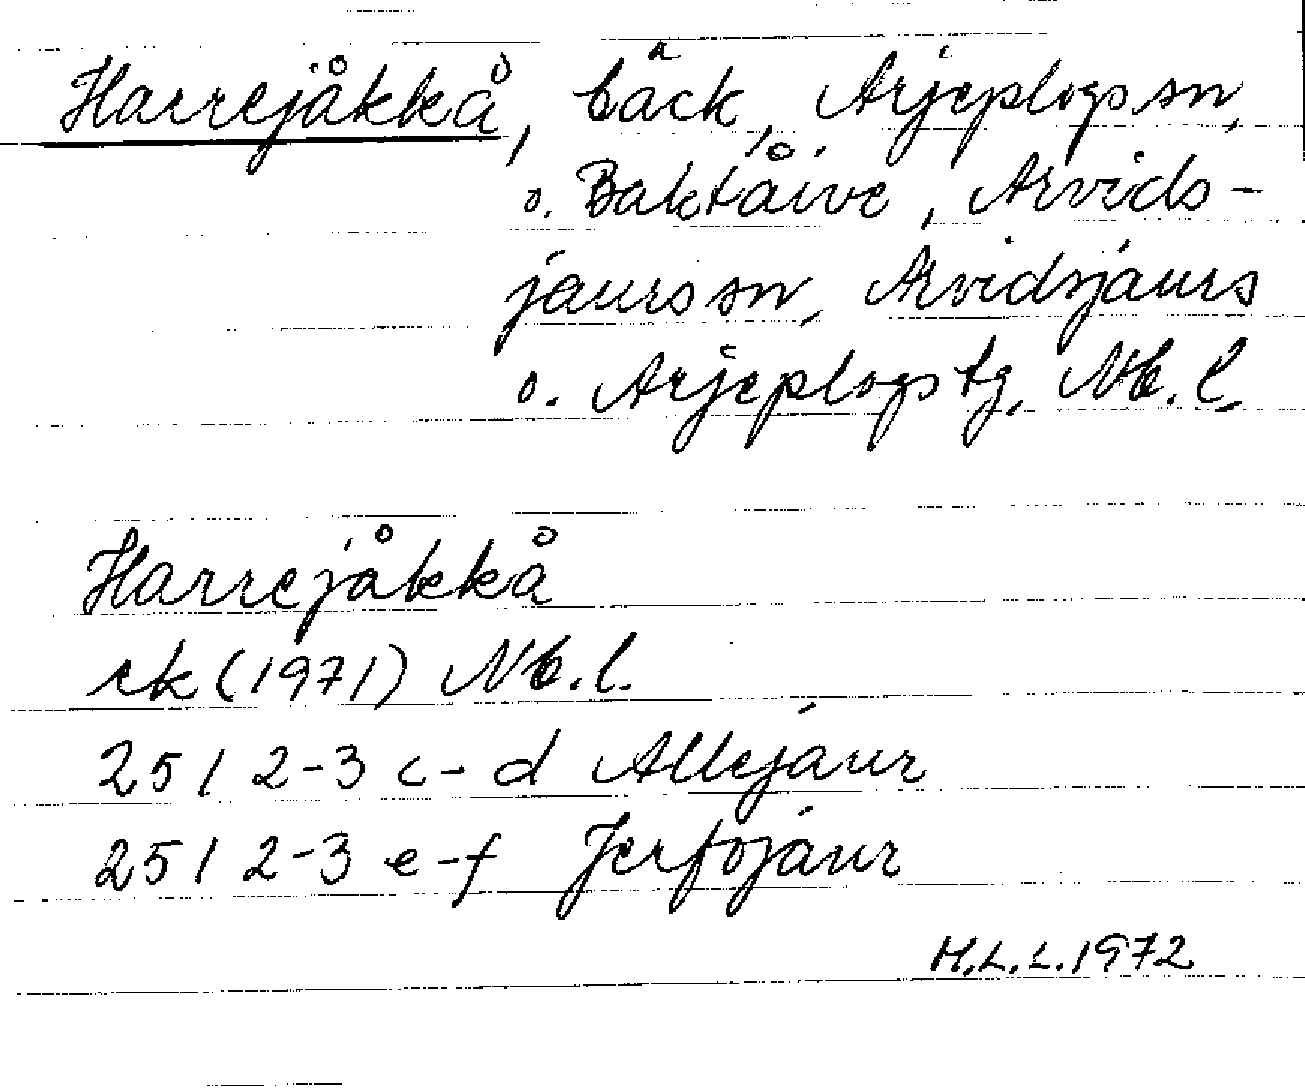 Harrejåkkå, bäck, Arjeplogs sn,
o. Baktåive, Arvids-
jaurs sn, Arvidsjaurs
o. Arjeplogs tg, Nb.l.
Harrejåkkå
ek (1971) Nb.l.
25 I 2-3 c-d Allejaur
25 I 2-3 e-f Jerfojaur
H.L.L. 1972